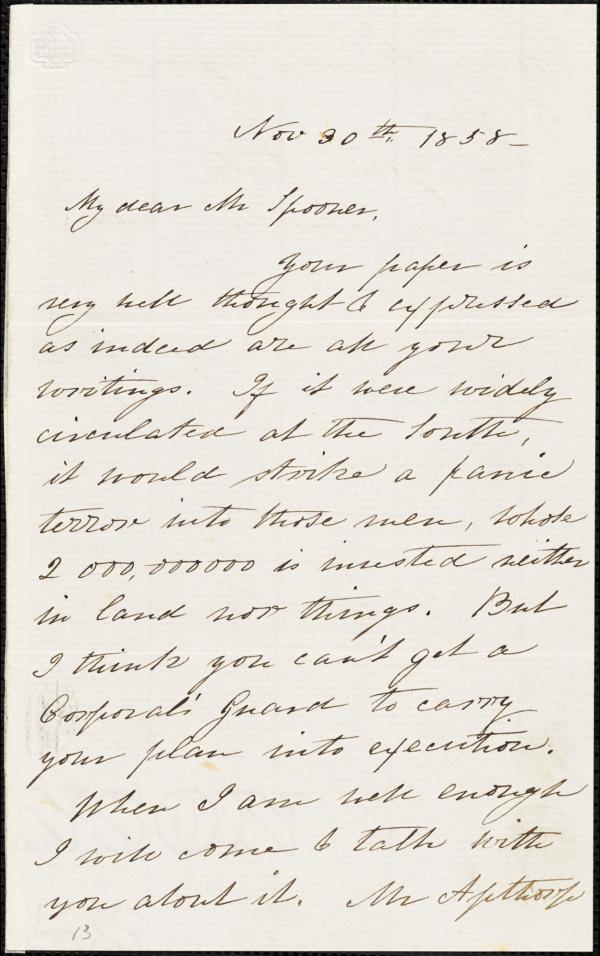 Nov 30th. 1858-
My dear Mr Spooner,
Your paper is
very well thought & expressed
as indeed are all your
writings. If it were widely
circulated at the South,
it would strike a panic
terror into those men, whose
2 000,000000 is invested neither
in land nor things. But
I think you can't get a
Corporal's Guard to carry
your plan into execution.
When I am well enough
I will come & talk with
you about it. Mr Apthorp
13